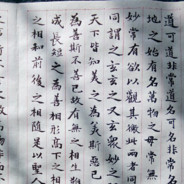 道可道非常道名可名非常
地之始有名萬物之母常無
妙常有欲以觀其徼此兩者同
同謂之玄玄之又玄眾妙之
天下皆知美之為美斯惡已
善斯不善已故有無之相生
成長短之相形高下之相
之相和前後之相隨是以聖